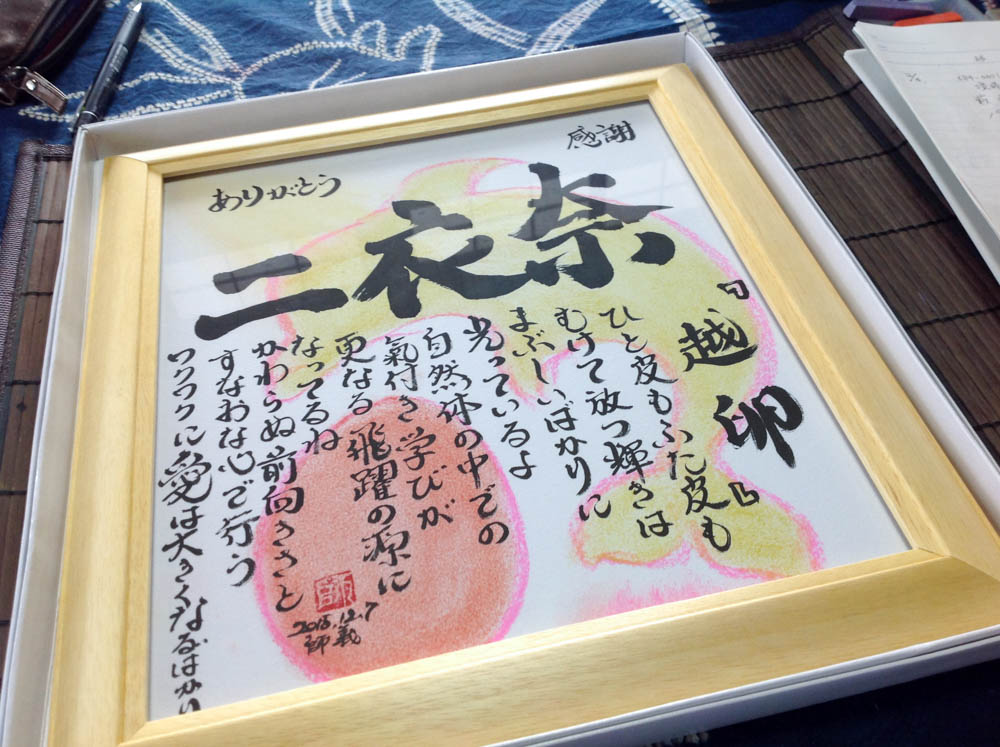 感謝
ありがとう
二衣奈
『越卵』
ひと皮もふた皮も
むけて放つ輝きは
まぶしいばかりに
光っているよ
自然体の中での
氣付き学びが
更なる飛躍の源に
なってるね
かわらぬ前向きさと
すなおな心で行う
ワクワクに愛は大きくなるばかり
2015.12.7